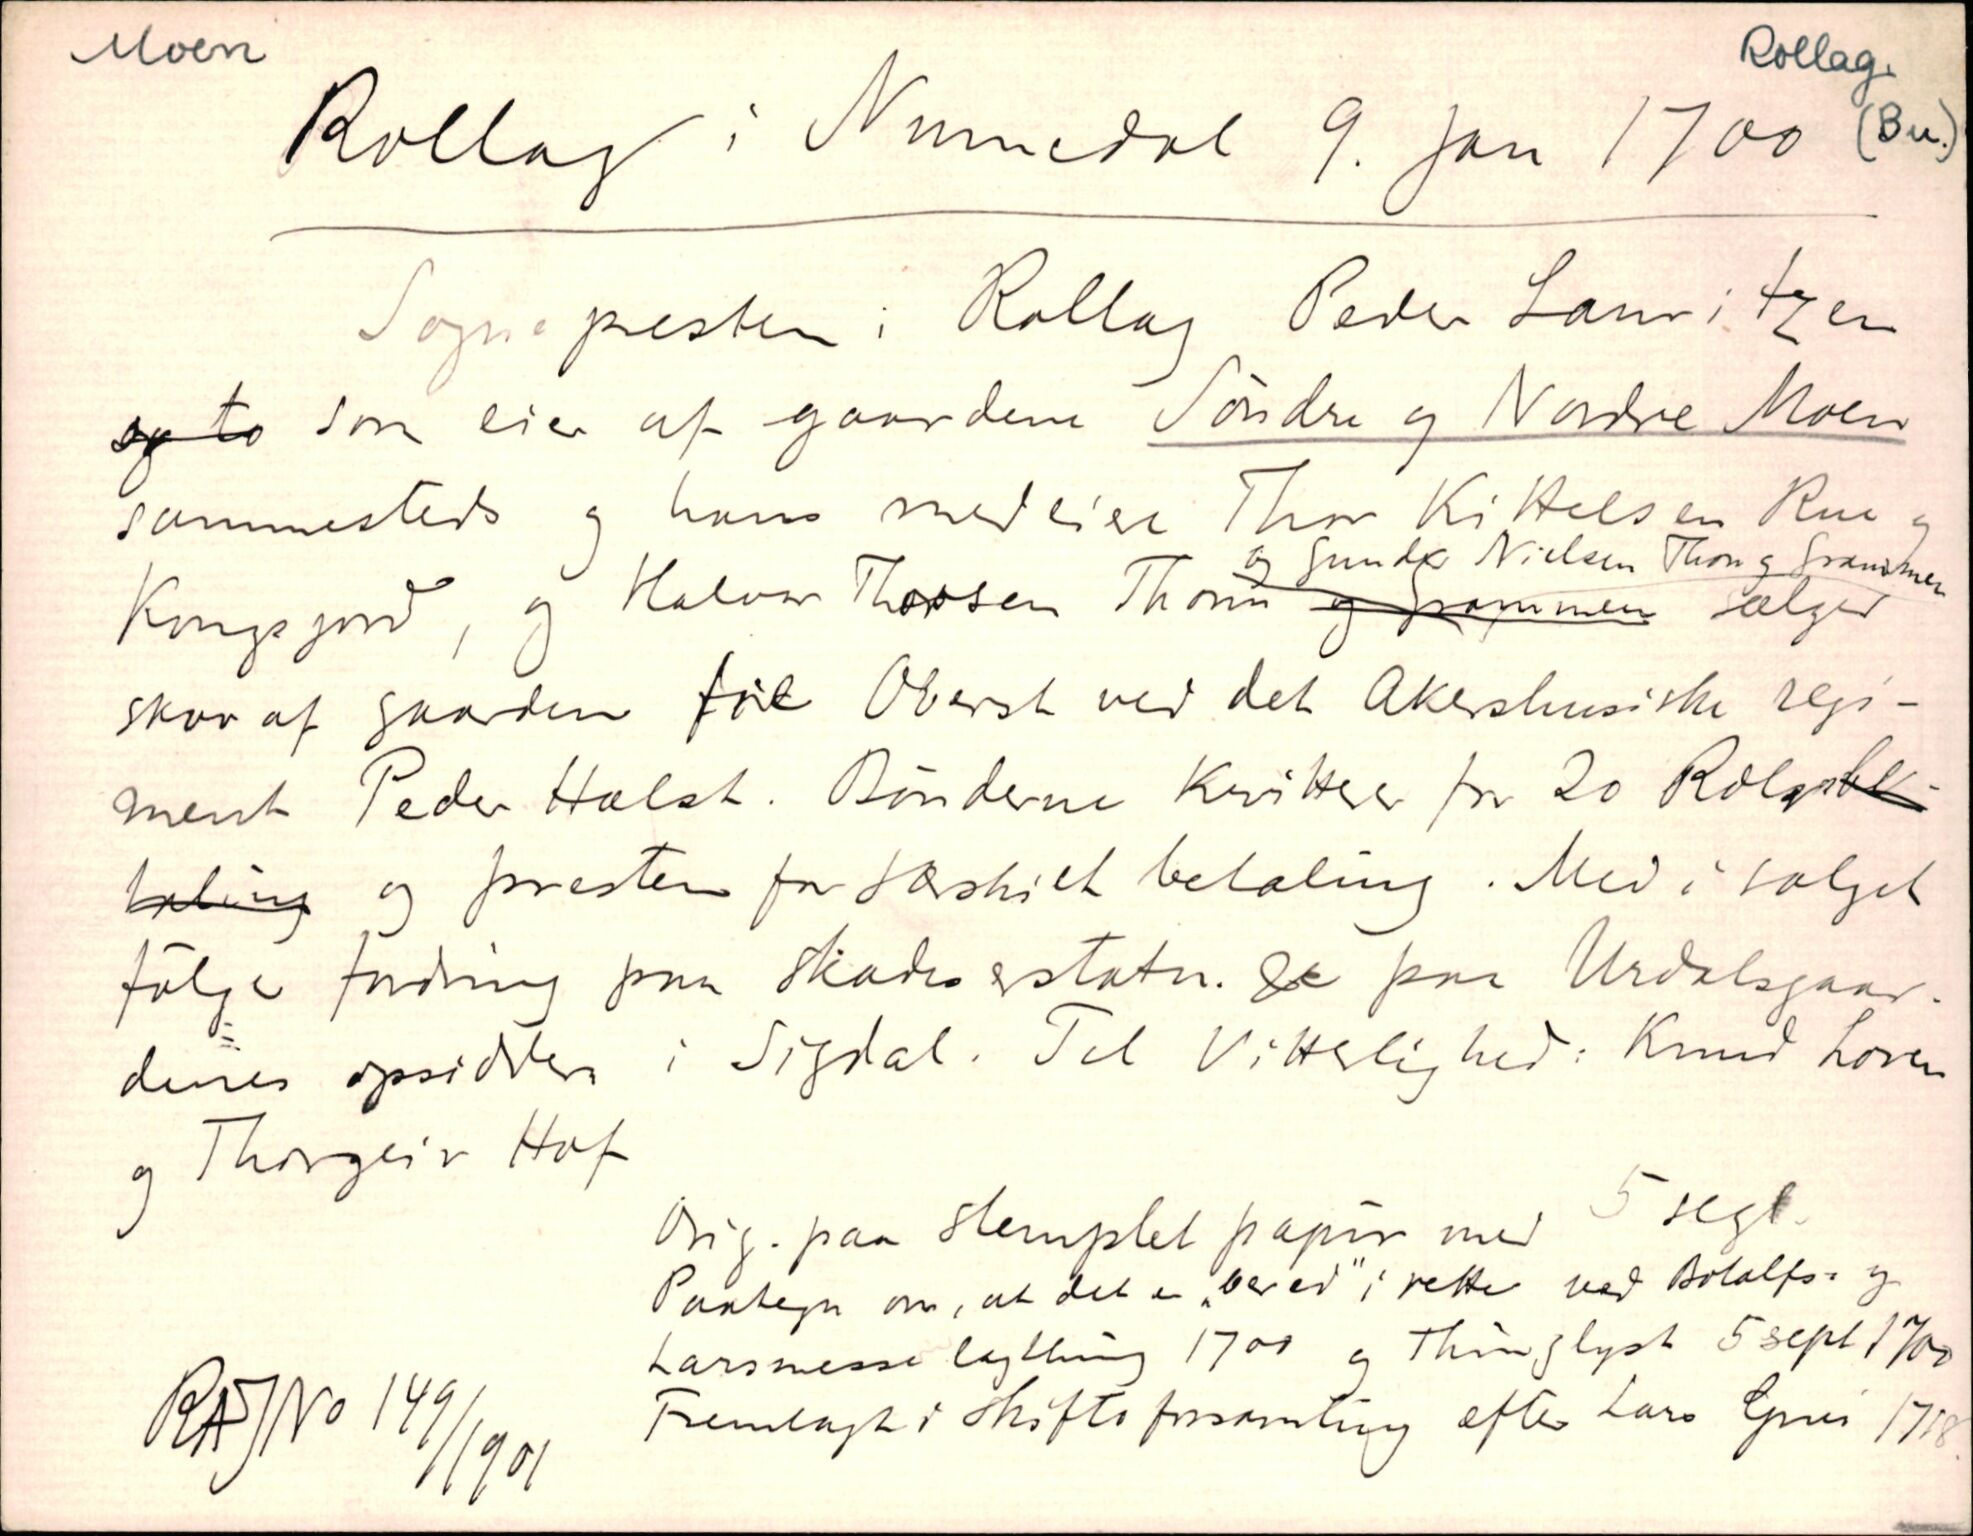 Moen
Rollag.
(Bu.)
Rollag i Numedal 9. Jan 1700
Sognepresten i Rollag Peder Lauritzen
og to som eier af gaardene Söndre og Nordre Moen
sammesteds og hans medeiere Thor Kittelsen Rue og
og Gunder Nielsen Thon og Grammen
Kongsjord, og Halvor Thorsen Thonn og Grammen sælger
skov af gaarden til Oberst ved det Akershusiske regi-
ment Peder Halst. Bönderne kvitterer for 20 Rdlr, be-
taling og presten for særskilt betaling. Med i salget
fölger fordring paa skadeserstatn. paa Urdalsgaar-
denes opsiddere i Sigdal. Til Vitterlighed: Knud Loven
og Thorgeir Hof
Orig. paa stemplet papir med 5 segl.
Paategn om, at det er „vered" i rette ved Botolfs- og
Larsmesse lagthing 1700 og thinglyst 5 sept 1700
Fremlagt i skiftesforsamling efter Lars 1718.
RA JNo 149/1901